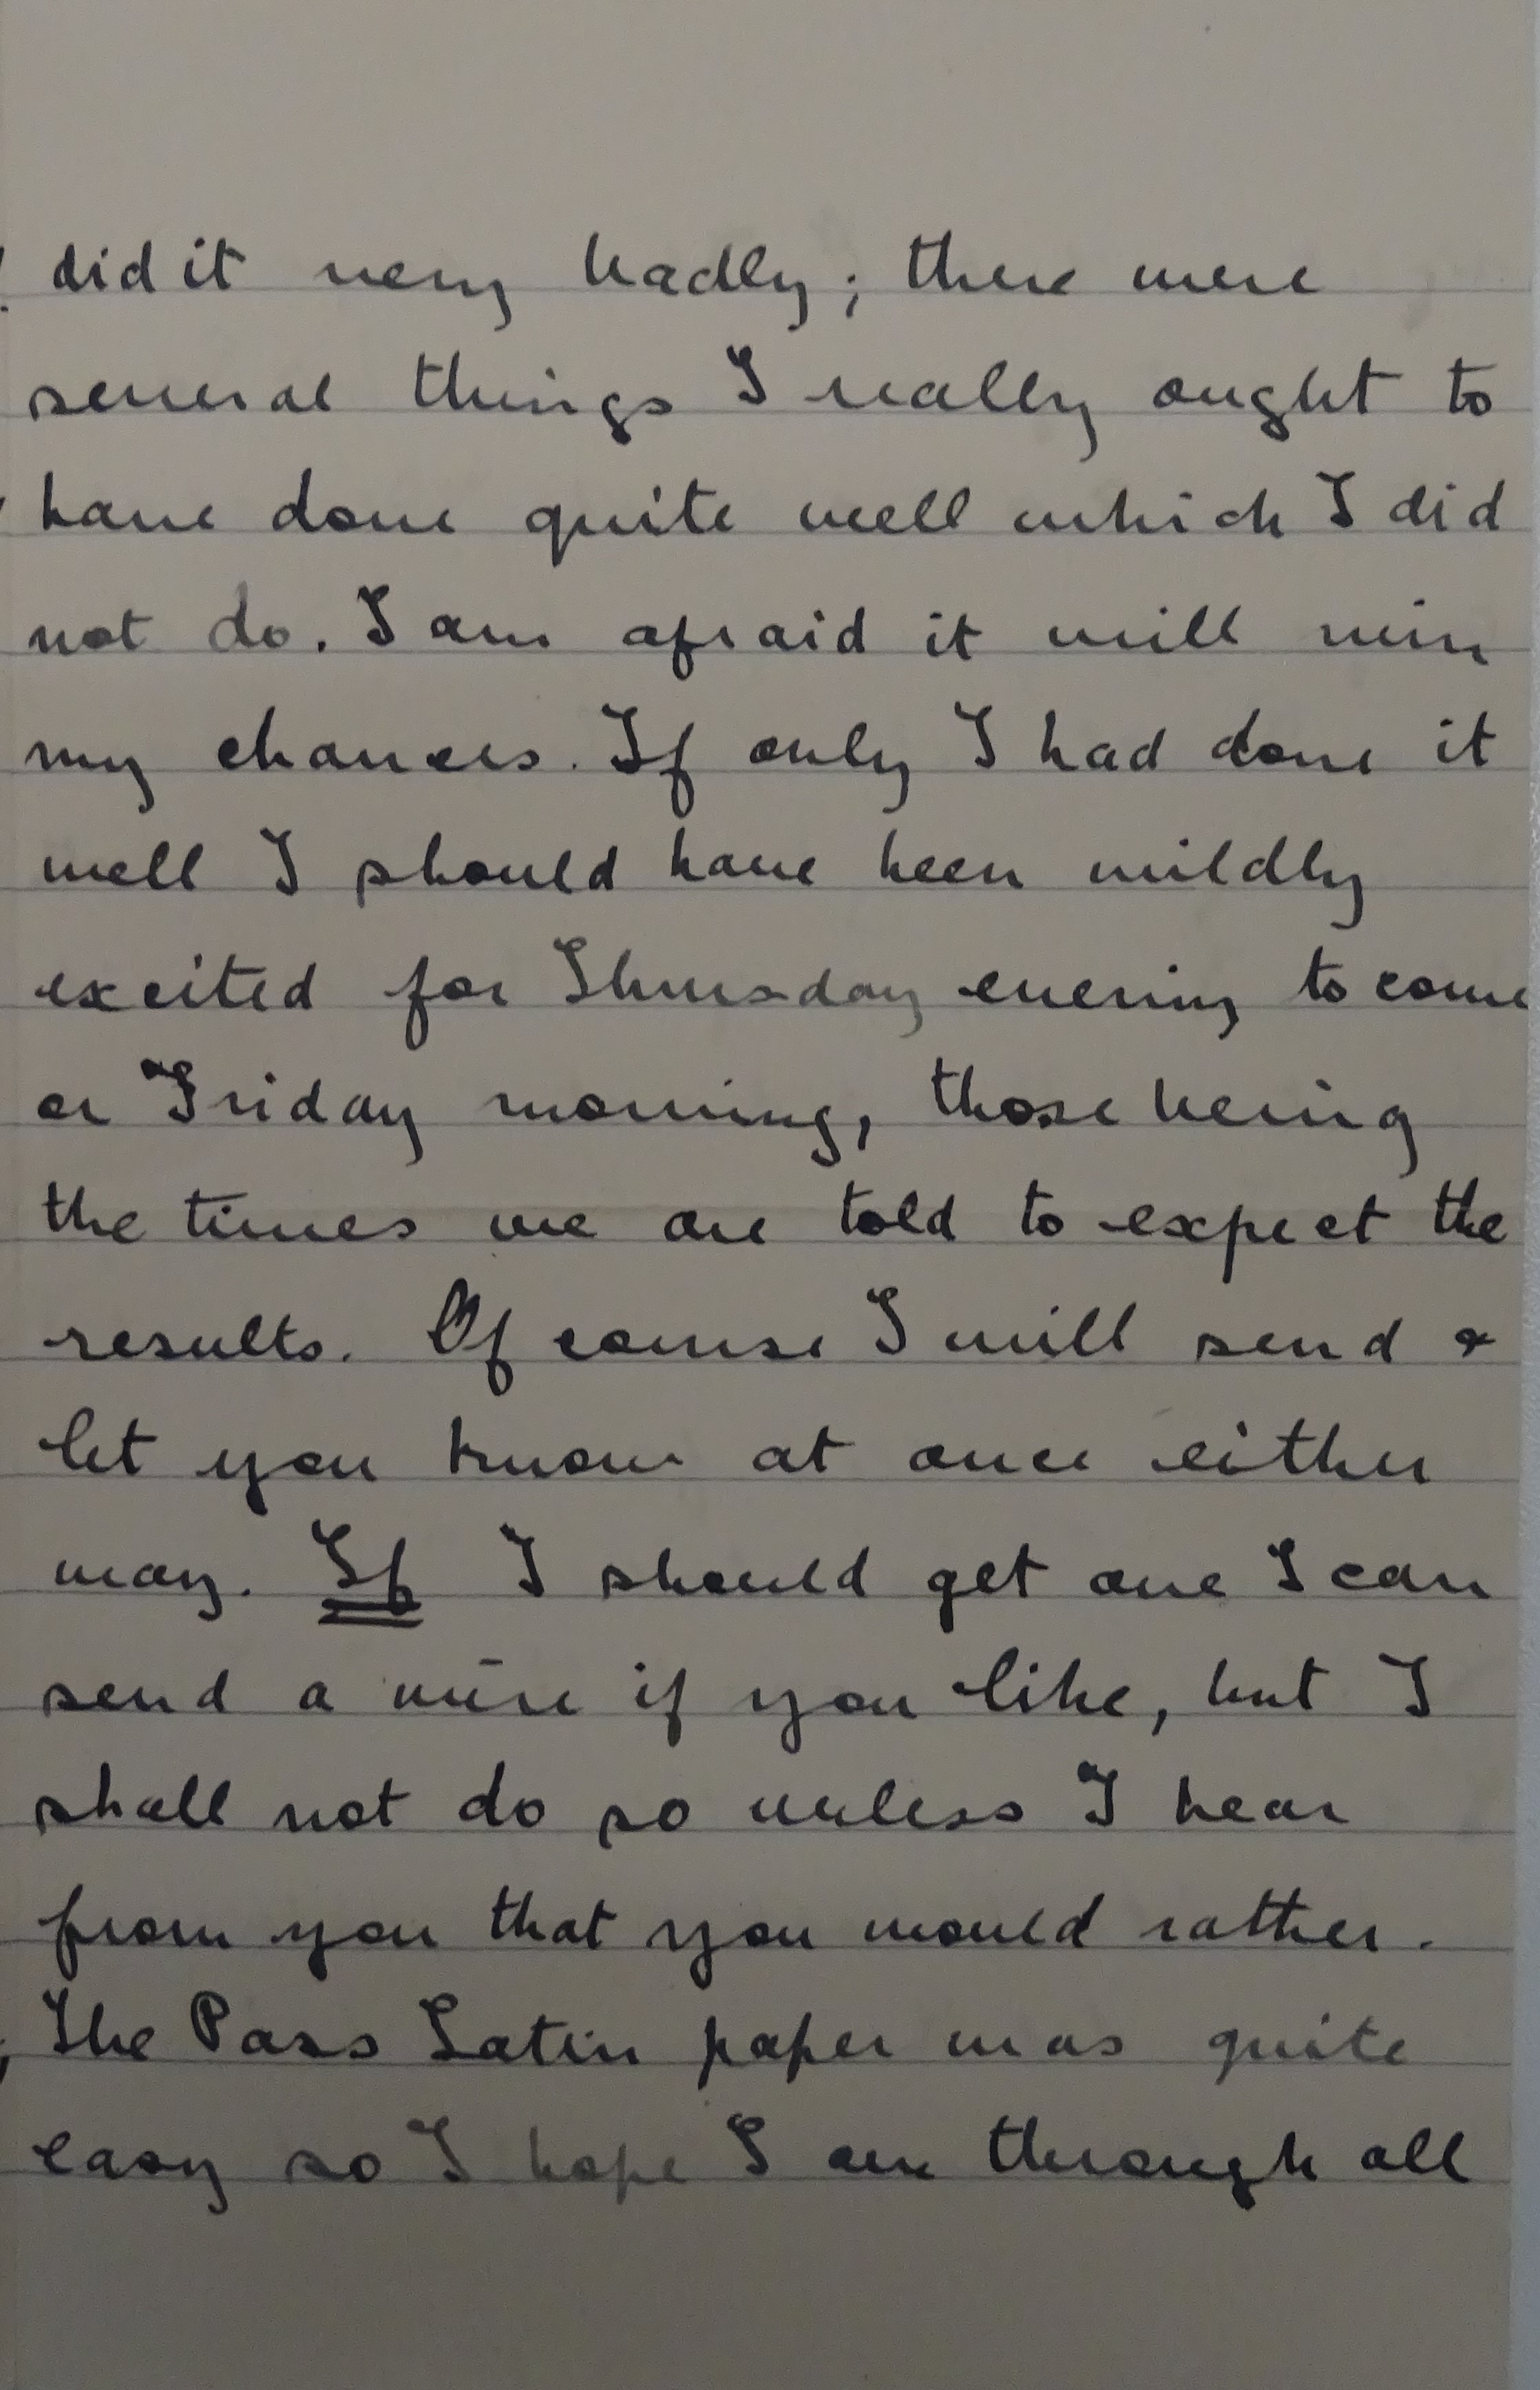 did it very badly; there were
several things I really ought to
have done quite well which I did
not do. I am afraid it will ruin
my chances. If only I had done it
well I should have been mildly
excited for Thursday evening to come
or Friday morning, those being
the times we are told to expect the
results. Of course I will send &
let you know at once either
way. If I should get one I can
send a wire if you like, but I
shall not do so unless I hear
from you that you would rather.
The Pass Latin paper was quite
easy so I hope I am through all